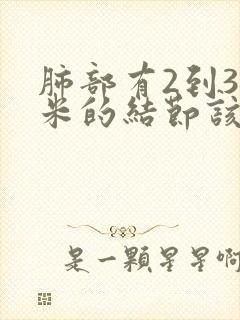 肺部有2到3
米的結節該
是一顆星星啊